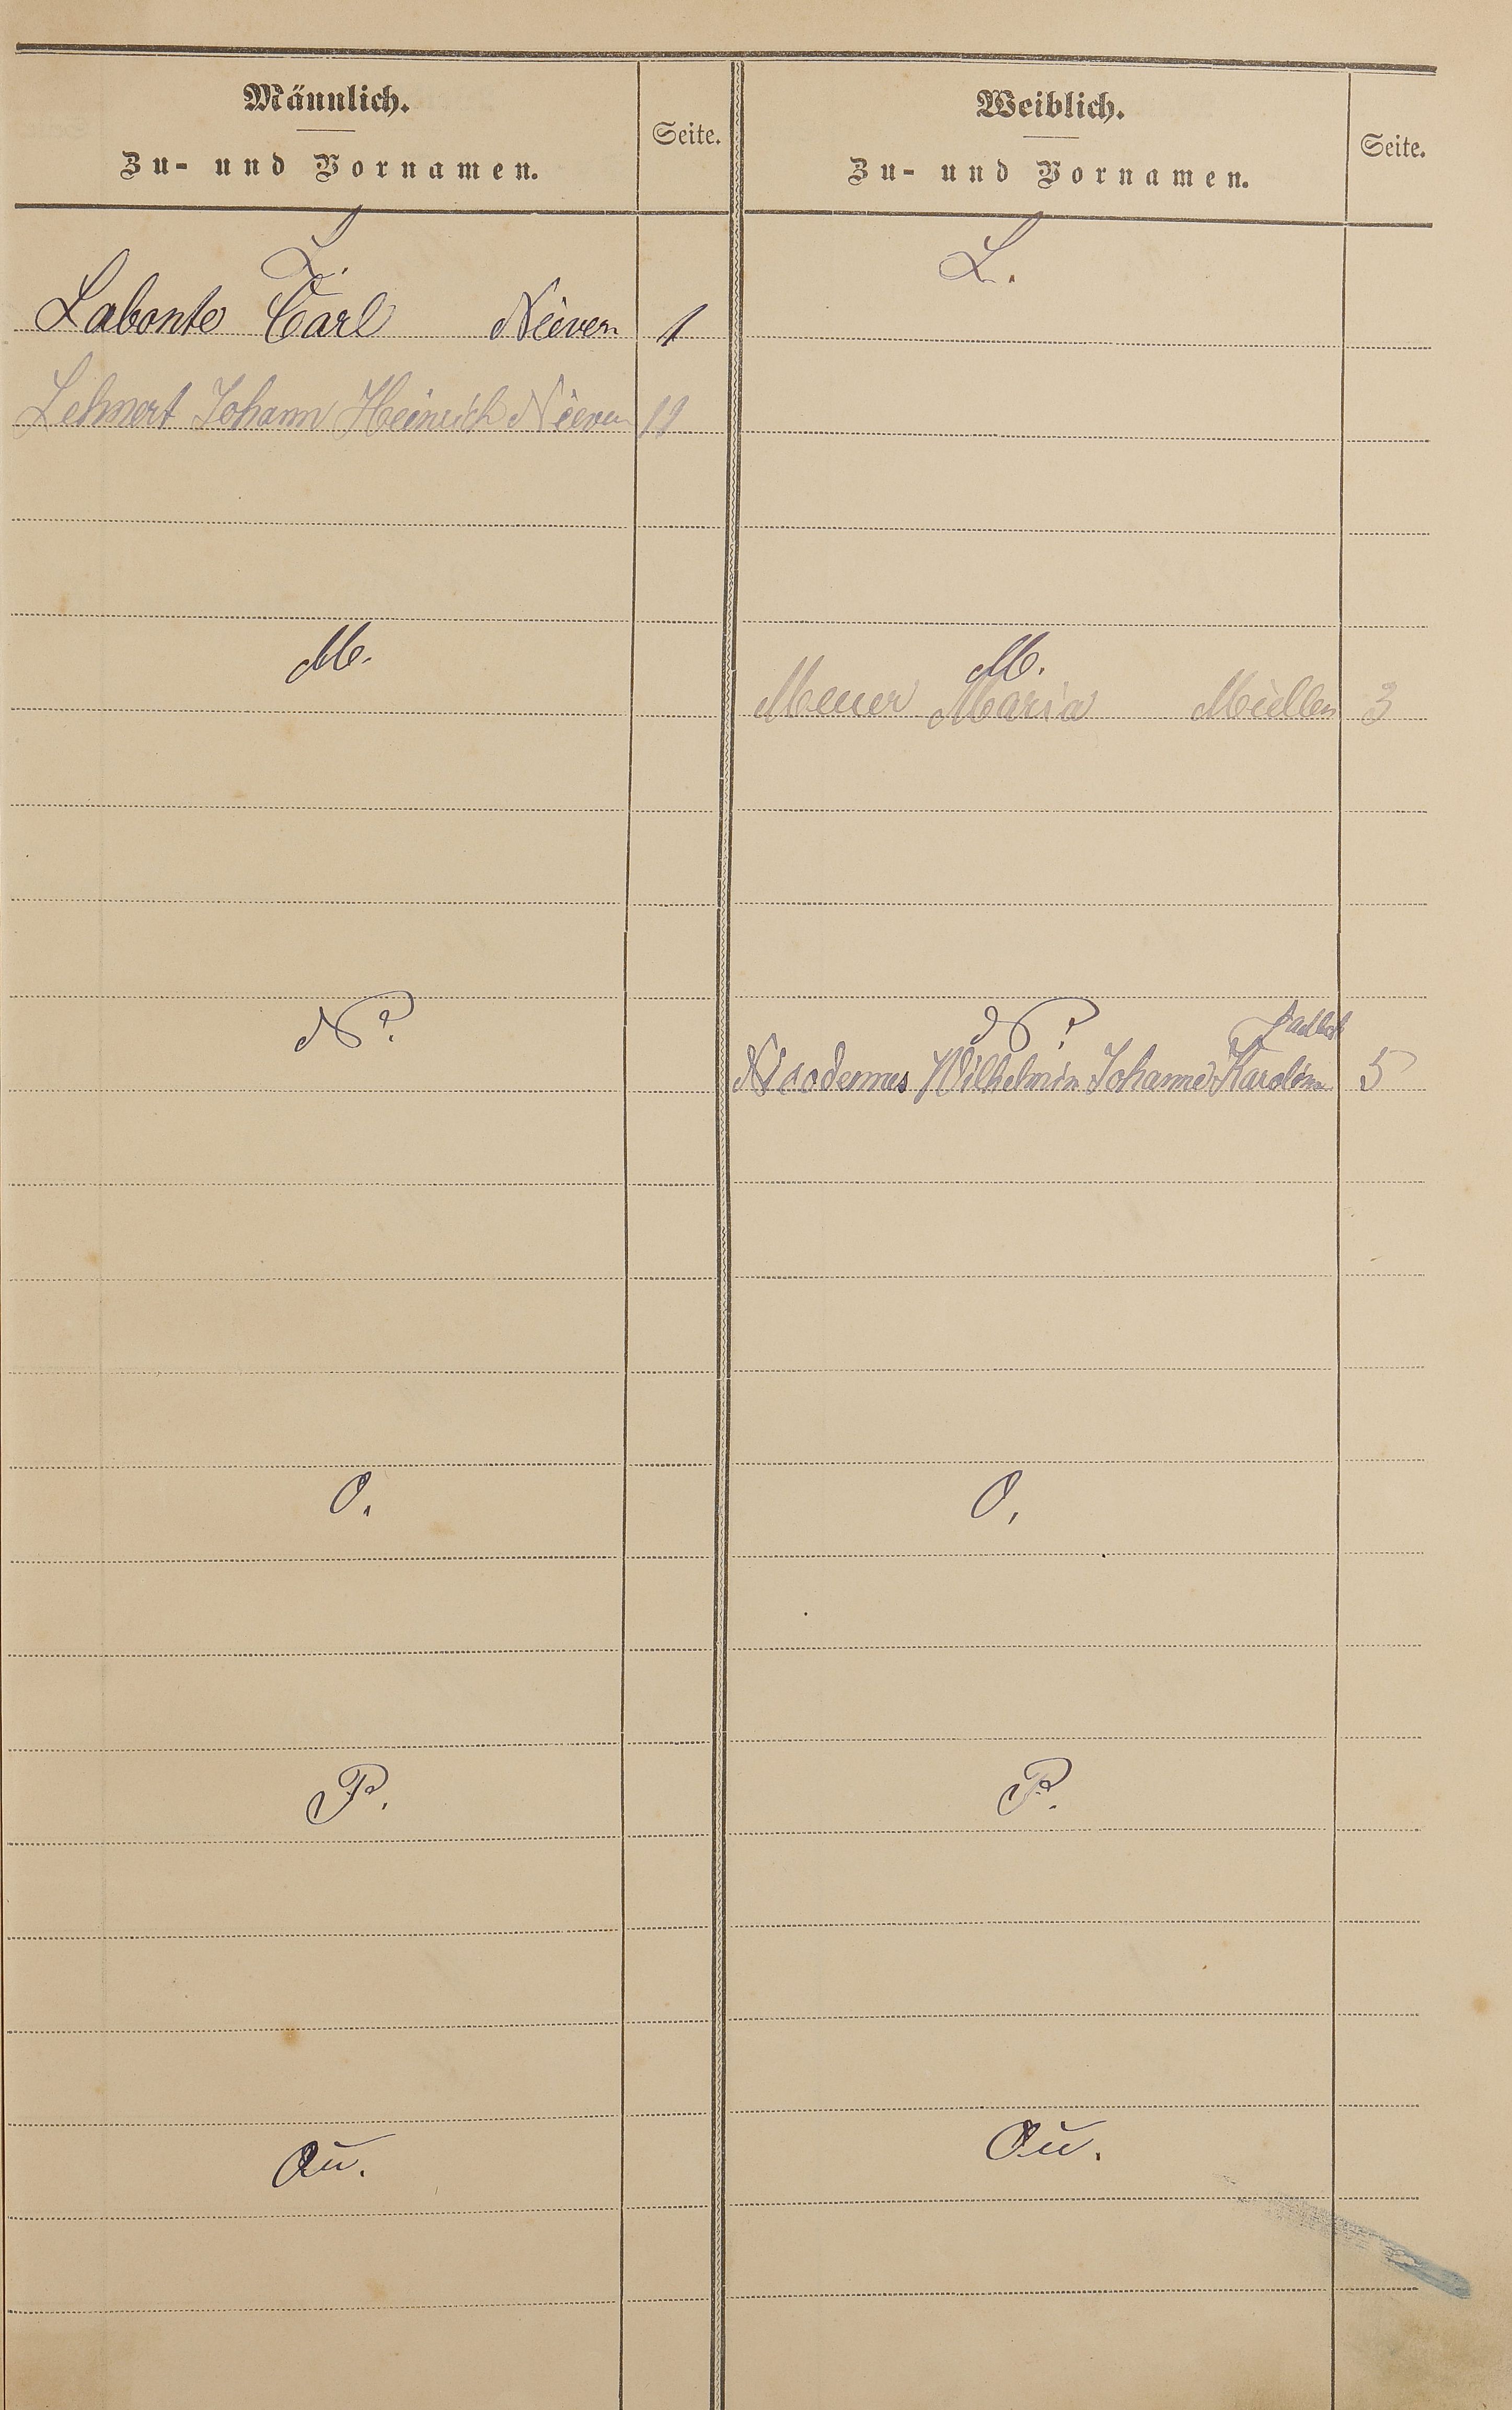 Männlich.
Zu- und Vornamen.
Seite.
L.
Labonte Carl Nievern 1
Lehnert Johann Heinrich Nievern 11
M.
N.
O.
P.
Qu.
Weiblich.
Zu- und Vornamen.
Seite.
L.
M.
Meuer Maria Müllen 3
N.
Nicodemus Wilhelmin Johanne Karolin 5
O.
P.
Qu.